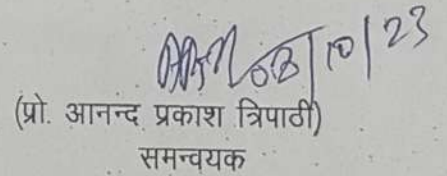 03/10/23
(प्रो. आनन्द प्रकाश त्रिपाठी)
समन्वयक